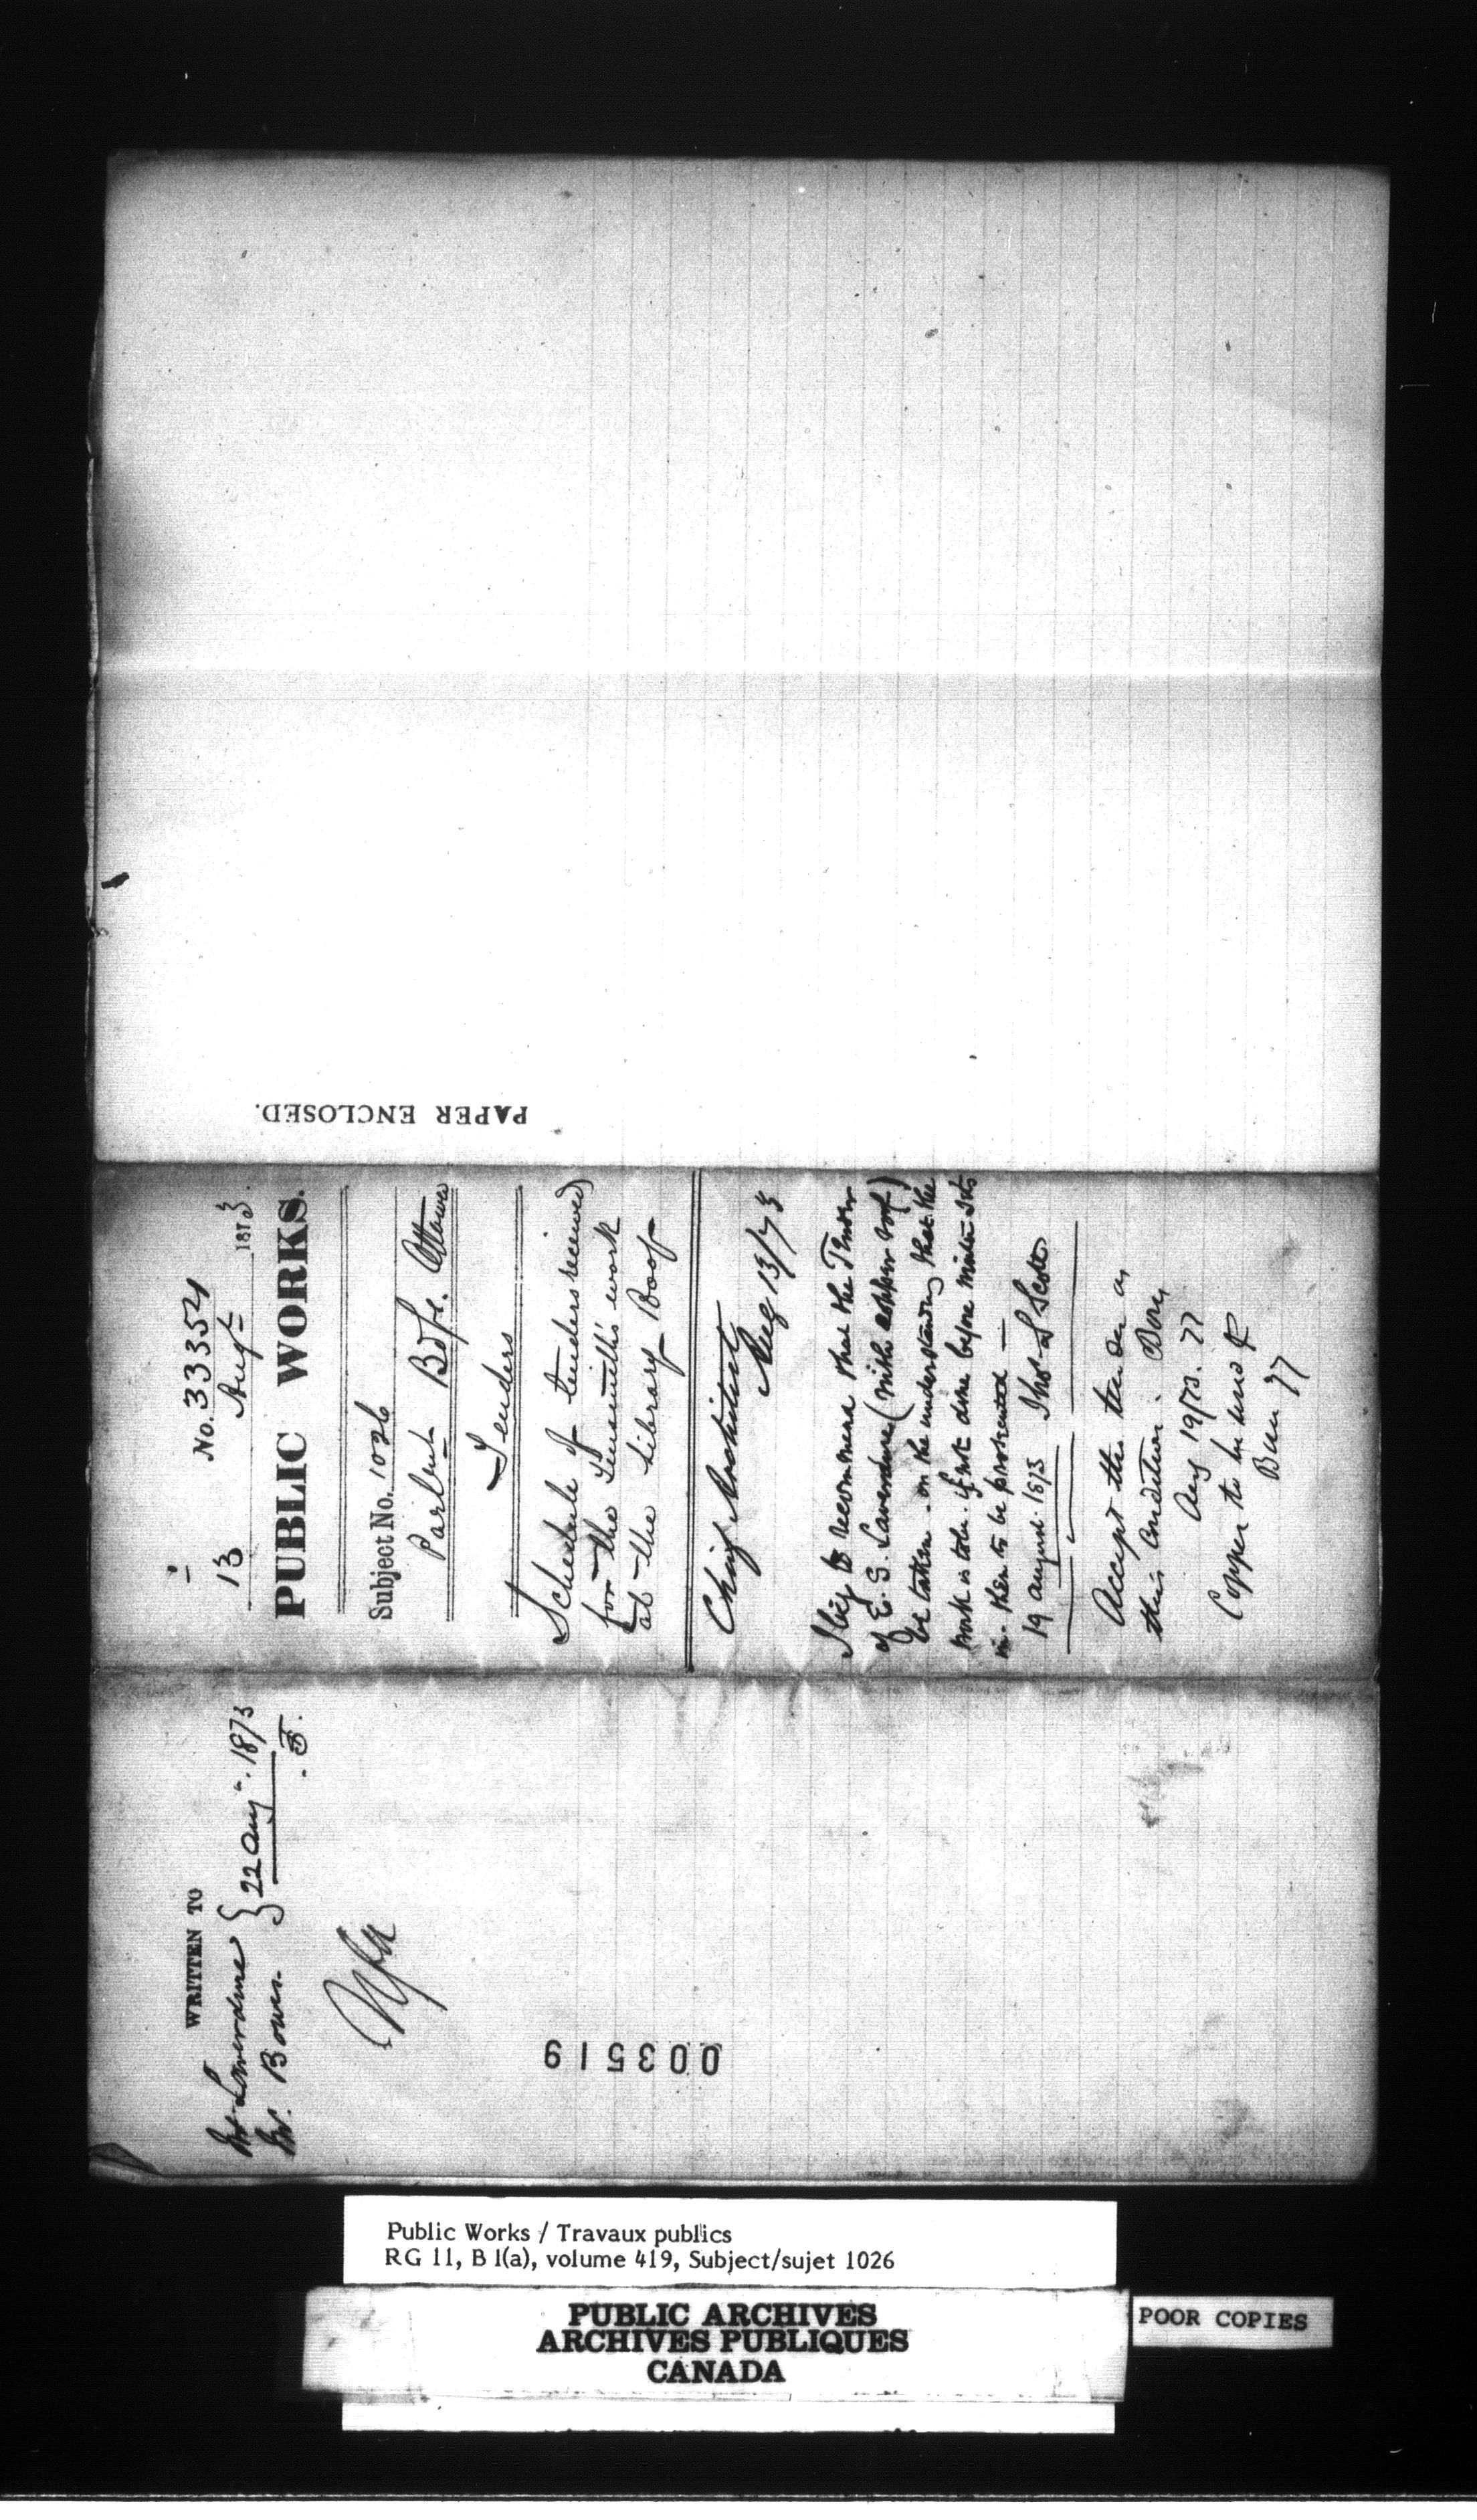 WRITTEN TO
Mr. Laverdure } 22 Aug. 1873
Mr. Bowes. F.
003519
No. 33354
13 Augt 1873
PUBLIC WORKS.
Subject No. 1026
Parlmt Bdgs. Ottawa
Tenders
Schedule of tenders received
for the Tinsmith's work
at the Library Roof
Chief Architect
Aug 13/73
I beg to recommend that the Tender
of E. G. Laverdure (with copper roof)
be taken on the understanding that the
work is to be if not done before winter sets
in. then to be protected —
19 August 1873 Thos S Scott
Accept the tender on
this condition.
Aug 19/73.
Copper to be used
PAPER ENCLOSED.
Public Works / Travaux publics
RG 11, B 1(a), volume 419, Subject/sujet 1026
PUBLIC ARCHIVES
ARCHIVES PUBLIQUES
CANADA
POOR COPIES